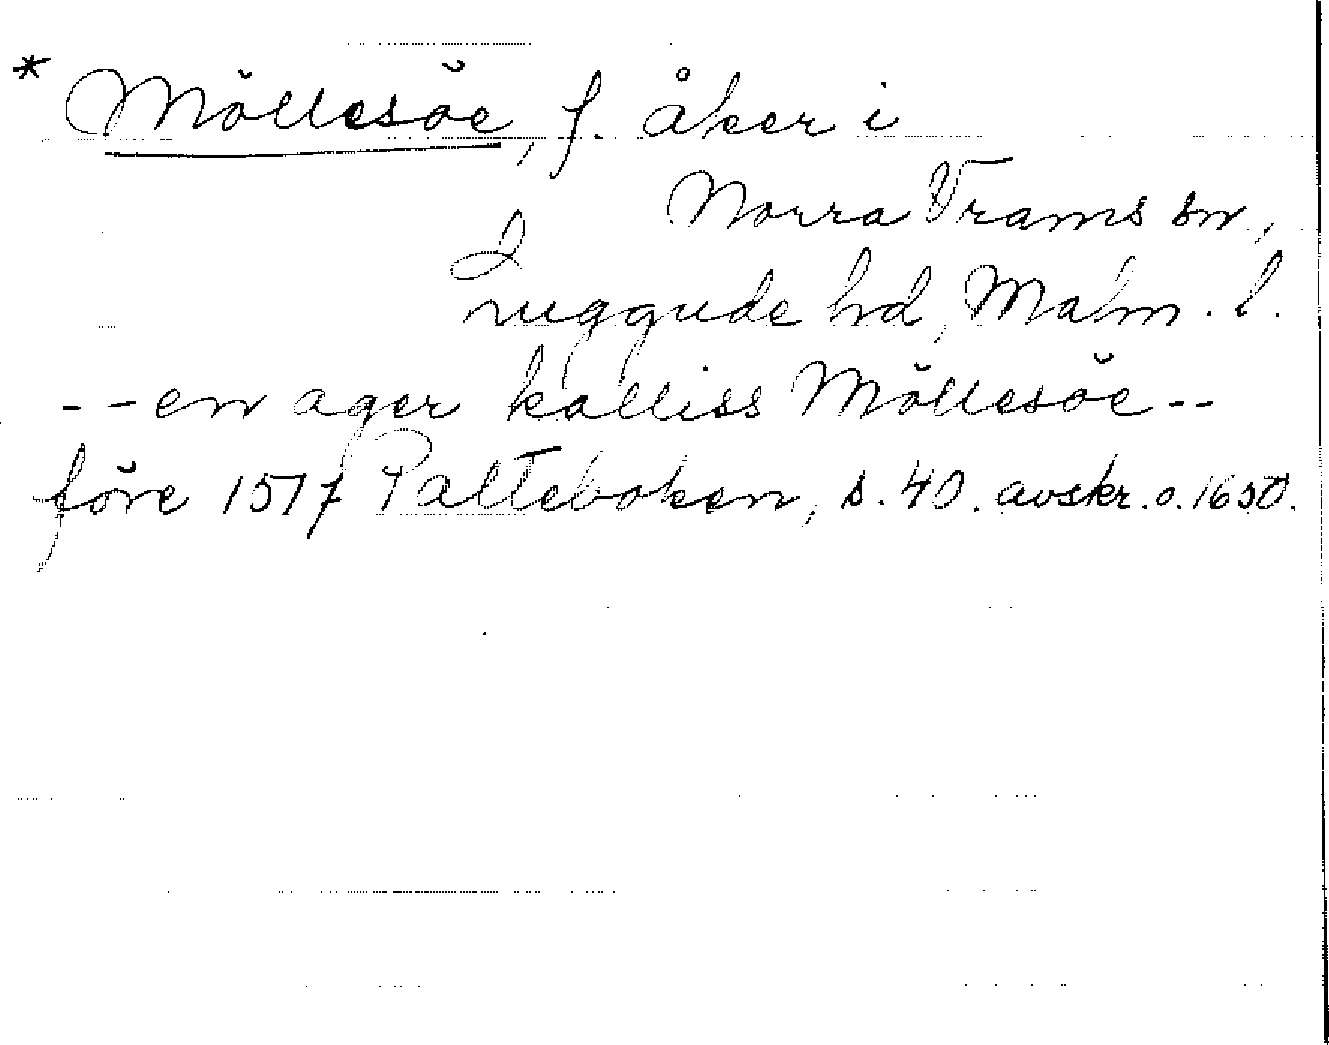 * Möllesöe, f. åker i
Norra Vrams sn,
Luggude hd, Malm. l.
-- en ager kalliss Möllesöe --
före 1517 Palteboken, s. 40. avskr. o. 1650.